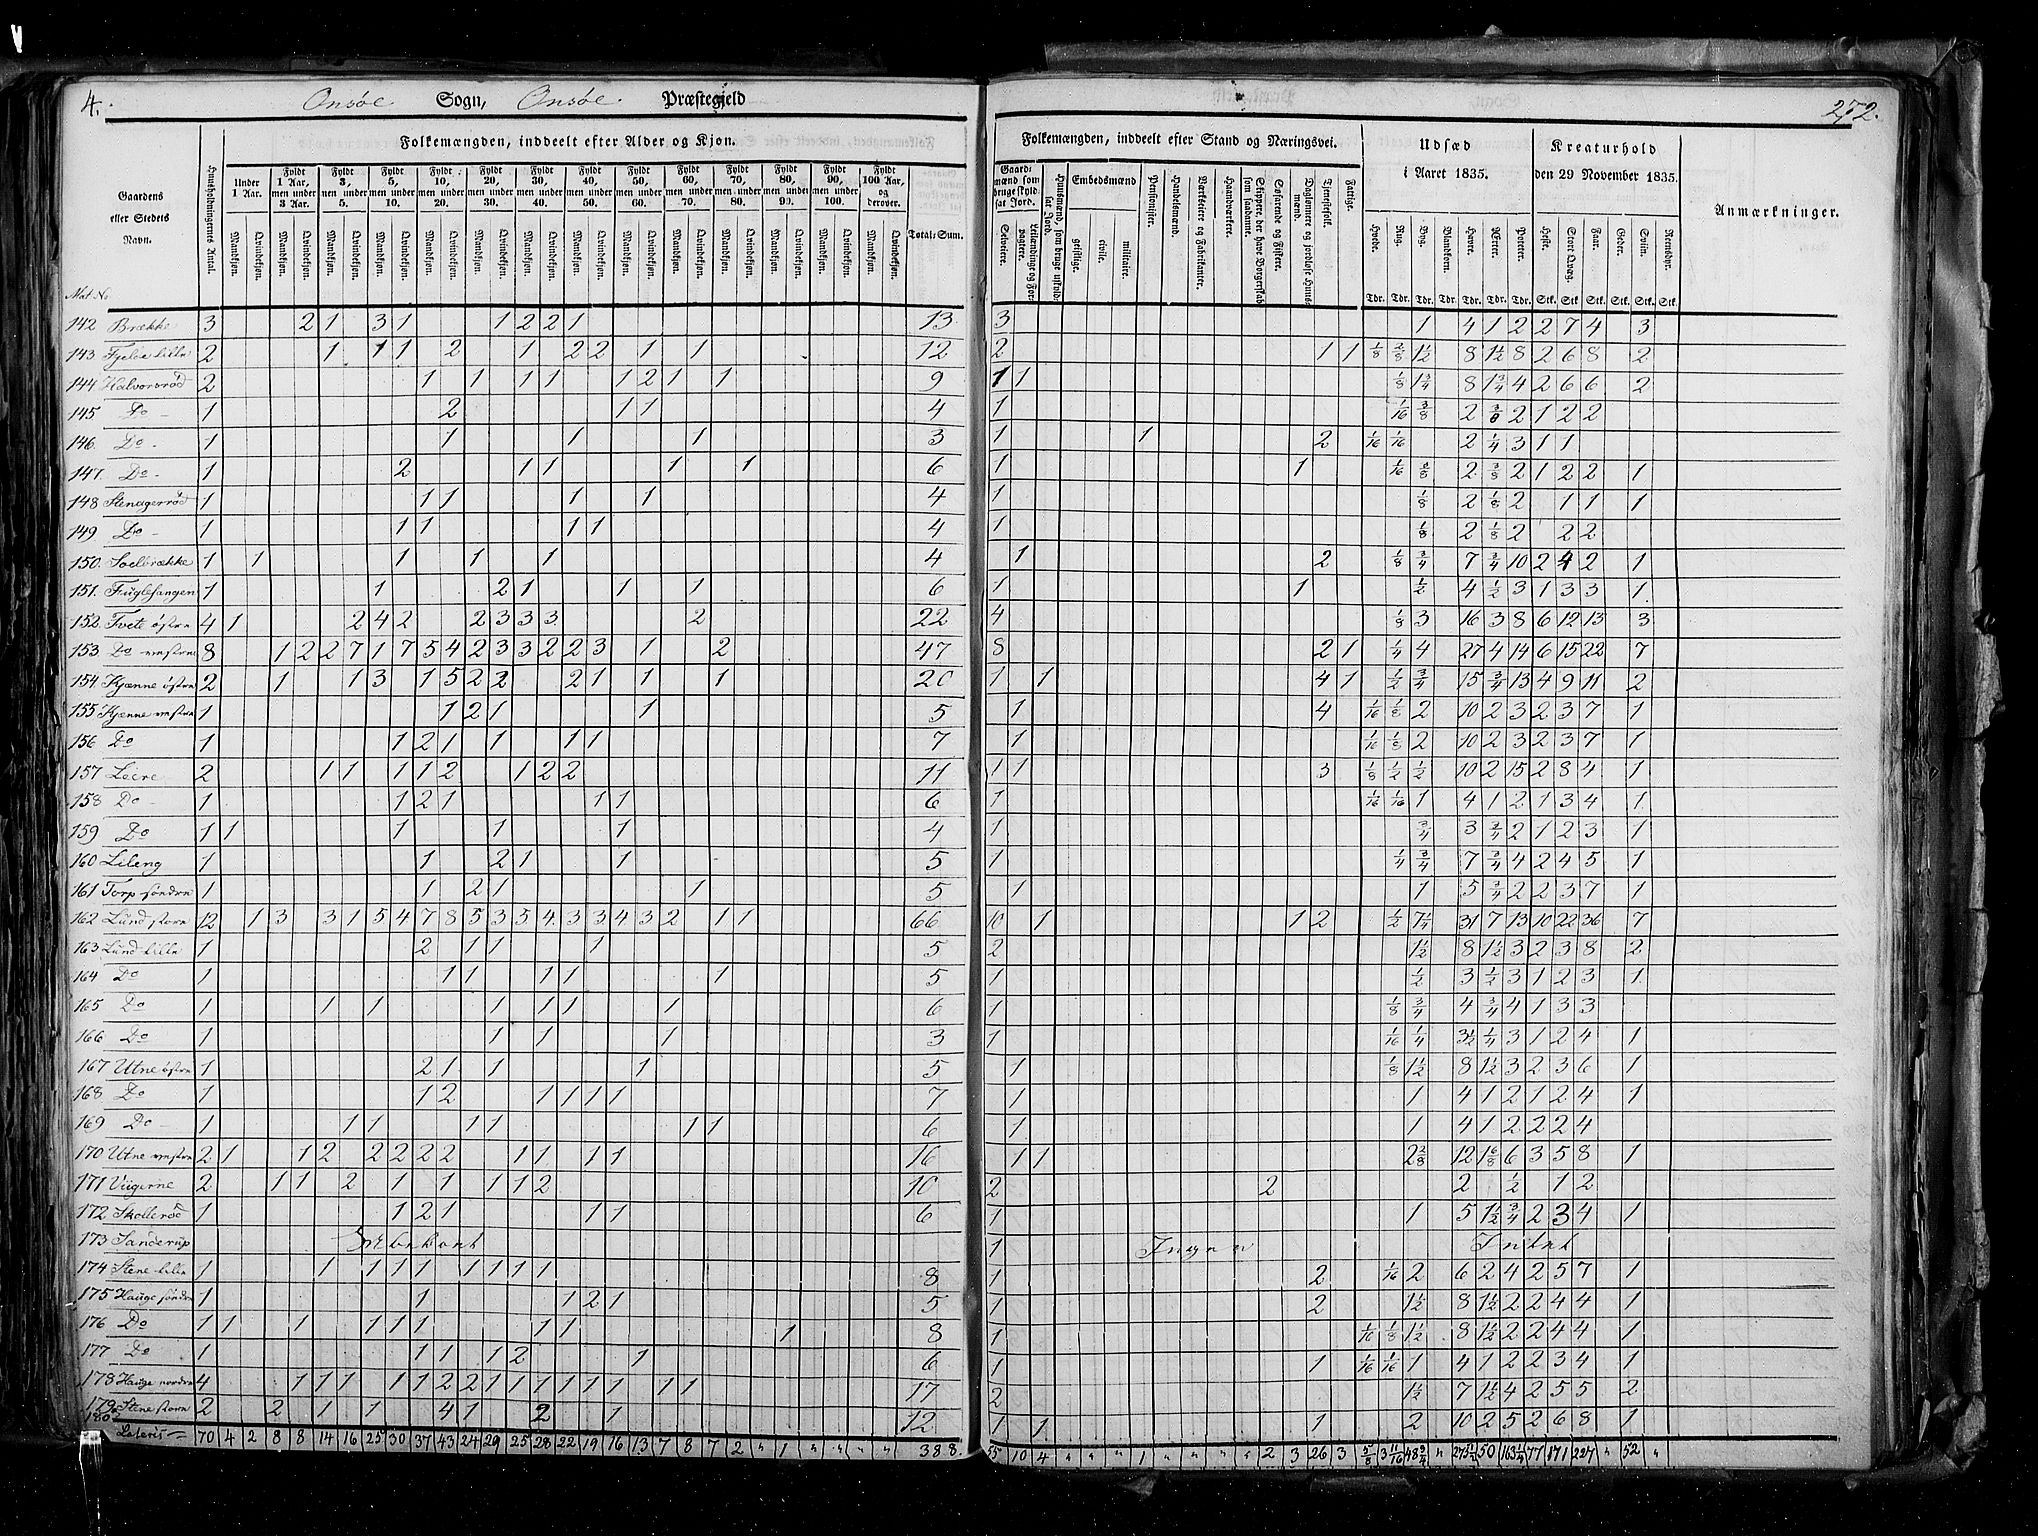 4.
Onsöe Sogn, Onsöe Præstegjeld
272.
Folkemængden, inddeelt efter Alder og Kjøn.
Folkemængden, inddeelt efter Stand og Næringsvei.
Udsæd i Aaret 1835.
Kreaturhold den 29 November 1835.
Anmærkninger.
Gaardens eller Stedets Navn.
Huusholdningernes Antal.
Under 1 Aar.
Fyldt 1 Aar, men under 3 Aar.
Fyldt 3, men under 5.
Fyldt 5, men under 10.
Fyldt 10, men under 20.
Fyldt 20, men under 30.
Fyldt 30, men under 40.
Fyldt 40, men under 50.
Fyldt 50, men under 60.
Fyldt 60, men under 70.
Fyldt 70, men under 80.
Fyldt 80, men under 90.
Fyldt 90, men under 100.
Fyldt 100 Aar, og derover.
Mandkjøn. Qvindekjøn.
Total-Sum.
Gaardmænd som bruge skyldsat Jord.
Selveiere.
Leilændinge og Forpagtere.
Huusmænd, som bruge uskyldsat Jord.
Embedsmænd
geistlige. civile. militaire.
Pensionister.
Handelsmænd.
Værkseiere og Fabrikanter.
Haandværkere.
Skippere, der have Borgerskab som saadanne.
Søfarende og Fiskere.
Daglønnere og jordløse Huusmænd.
Tjenestefolk.
Fattige.
Hvede. Rug. Byg. Blandkorn. Havre. Ærter. Poteter. Heste. Stort Qvæg. Faar. Geder. Sviin. Rensdyr.
Tdr. Tdr. Tdr. Tdr. Tdr. Tdr. Tdr. Stk. Stk. Stk. Stk. Stk. Stk.
Mat No
142 Brække 3 2 1 3 1 1 2 2 1 13 3 1 4 1 2 2 7 4 3
143 Fjelle lille 2 1 1 1 2 1 2 2 1 1 12 2 1 1 1/8 3/8 1 1/2 8 1 1/2 8 2 6 8 2
144 Halvorsröd 2 1 1 1 1 1 2 1 1 9 1 1 1/8 1 3/4 8 1 3/4 4 2 6 6 2
145 Do 1 2 1 1 4 1 1/16 3/8 2 3/8 2 1 2 2
146 Do 1 1 1 1 3 1 1 2 1/16 1/16 2 1/4 3 1 1
147 Do 1 2 1 1 1 1 6 1 1 1/16 3/8 2 3/8 2 1 2 2 1
148 Stenagerröd 1 1 1 1 1 4 1 1/8 2 1/8 2 1 1 1
149 Do 1 1 1 1 1 4 1 1/8 2 1/8 2 2 2
150 Soelbrække 1 1 1 1 1 4 1 2 1/8 3/4 7 3/4 10 2 4 2 1
151 Fuglesangen 1 1 2 1 1 1 6 1 1 1/2 4 1/2 3 1 3 3 1
152 Tvete östre 4 1 2 4 2 2 3 3 3 2 22 4 1/8 3 16 3 8 6 12 13 3
153 Do vestre 8 1 2 2 7 1 7 5 4 2 3 3 2 2 3 1 2 47 8 2 1 1/4 4 27 4 14 6 15 22 7
154 Kjænne östre 2 1 1 3 1 5 2 2 2 1 1 1 20 1 1 4 1 1/2 3/4 15 3/4 13 4 9 11 2
155 Kjænne vestre 1 1 2 1 1 5 1 4 1/16 1/8 2 10 2 3 2 3 7 1
156 Do 1 1 2 1 1 1 1 7 1 1/16 1/8 2 10 2 3 2 3 7 1
157 Leere 2 1 1 1 1 2 1 2 2 11 1 1 3 1/8 1/2 1/2 10 2 15 2 8 4 1
158 Do 1 1 2 1 1 1 6 1 1/16 1/16 1 4 1 2 1 3 4 1
159 Do 1 1 1 1 1 4 1 3/4 3 3/4 2 1 2 3 1
160 Lileng 1 1 2 1 1 5 1 1/4 3/4 7 3/4 4 2 4 5 1
161 Torp söndre 1 1 2 1 1 5 1 1 5 3/4 2 2 3 7 1
162 Lund store 12 1 3 3 1 5 4 7 8 5 3 5 4 3 3 4 3 2 1 1 66 10 1 1 2 1/2 7 1/4 31 7 13 10 22 36 7
163 Lund lille 1 2 1 1 1 5 2 1 1/2 8 1 1/2 3 2 3 8 2
164 Do 1 1 1 1 1 1 5 1 1/2 3 1/2 3 1 2 3 1
165 Do 1 1 1 1 1 1 1 6 1 1/8 3/4 4 3/4 4 1 3 3
166 Do 1 1 1 1 3 1 1/16 1/4 3 1/2 1/4 3 1 2 4 1
167 Utne östre 1 2 1 1 1 5 1 1/8 1 1/2 8 1 1/2 3 2 3 6 1
168 Do 1 1 2 1 1 1 1 7 1 1 4 1 2 1 2 4 1
169 Do 1 1 1 1 1 1 1 6 1 1 4 1 2 2 2 4
170 Utne vestre 2 1 1 2 2 2 2 2 1 1 1 1 16 1 1 2 2/8 12 1 6/8 6 3 5 8 1
171 Viigerne 2 1 1 2 1 1 1 1 2 10 2 2 2 1/2 1 2
172 Skolleröd 1 1 2 1 1 1 6 1 1 5 1 1/2 3/4 2 3 4 1
173 Sanderup Ubeboet 1 Ingen Intet
174 Stene lille 1 1 1 1 1 1 1 1 1 8 1 2 1/16 2 6 2 4 2 5 7 1
175 Hauge söndre 1 1 1 2 1 5 1 2 1 1/2 8 1 1/2 2 2 4 4 1
176 Do 1 1 1 1 1 1 1 1 1 8 1 1/16 1/8 1 1/2 8 1 1/2 2 2 4 4 1
177 Do 1 1 1 1 2 1 6 1 1 1/16 1/16 1 4 1 2 2 3 4 1
178 Hauge nordre 4 1 1 1 1 1 2 2 1 1 1 1 1 1 1 1 17 2 1 1/2 7 1 1/2 4 2 5 5 2
179 180 Stene store 2 2 1 1 4 1 2 1 12 1 1 1 2 10 2 5 2 6 8 1
Lateris 70 4 2 8 8 14 16 25 30 37 43 24 29 25 28 22 19 16 13 7 8 7 2 " 1 " " " " 388 55 10 4 " " " 1 " " " " 2 3 26 3 5/8 3 11/16 48 3/4 " 275 1/2 50 163 1/4 77 171 227 " 52 "